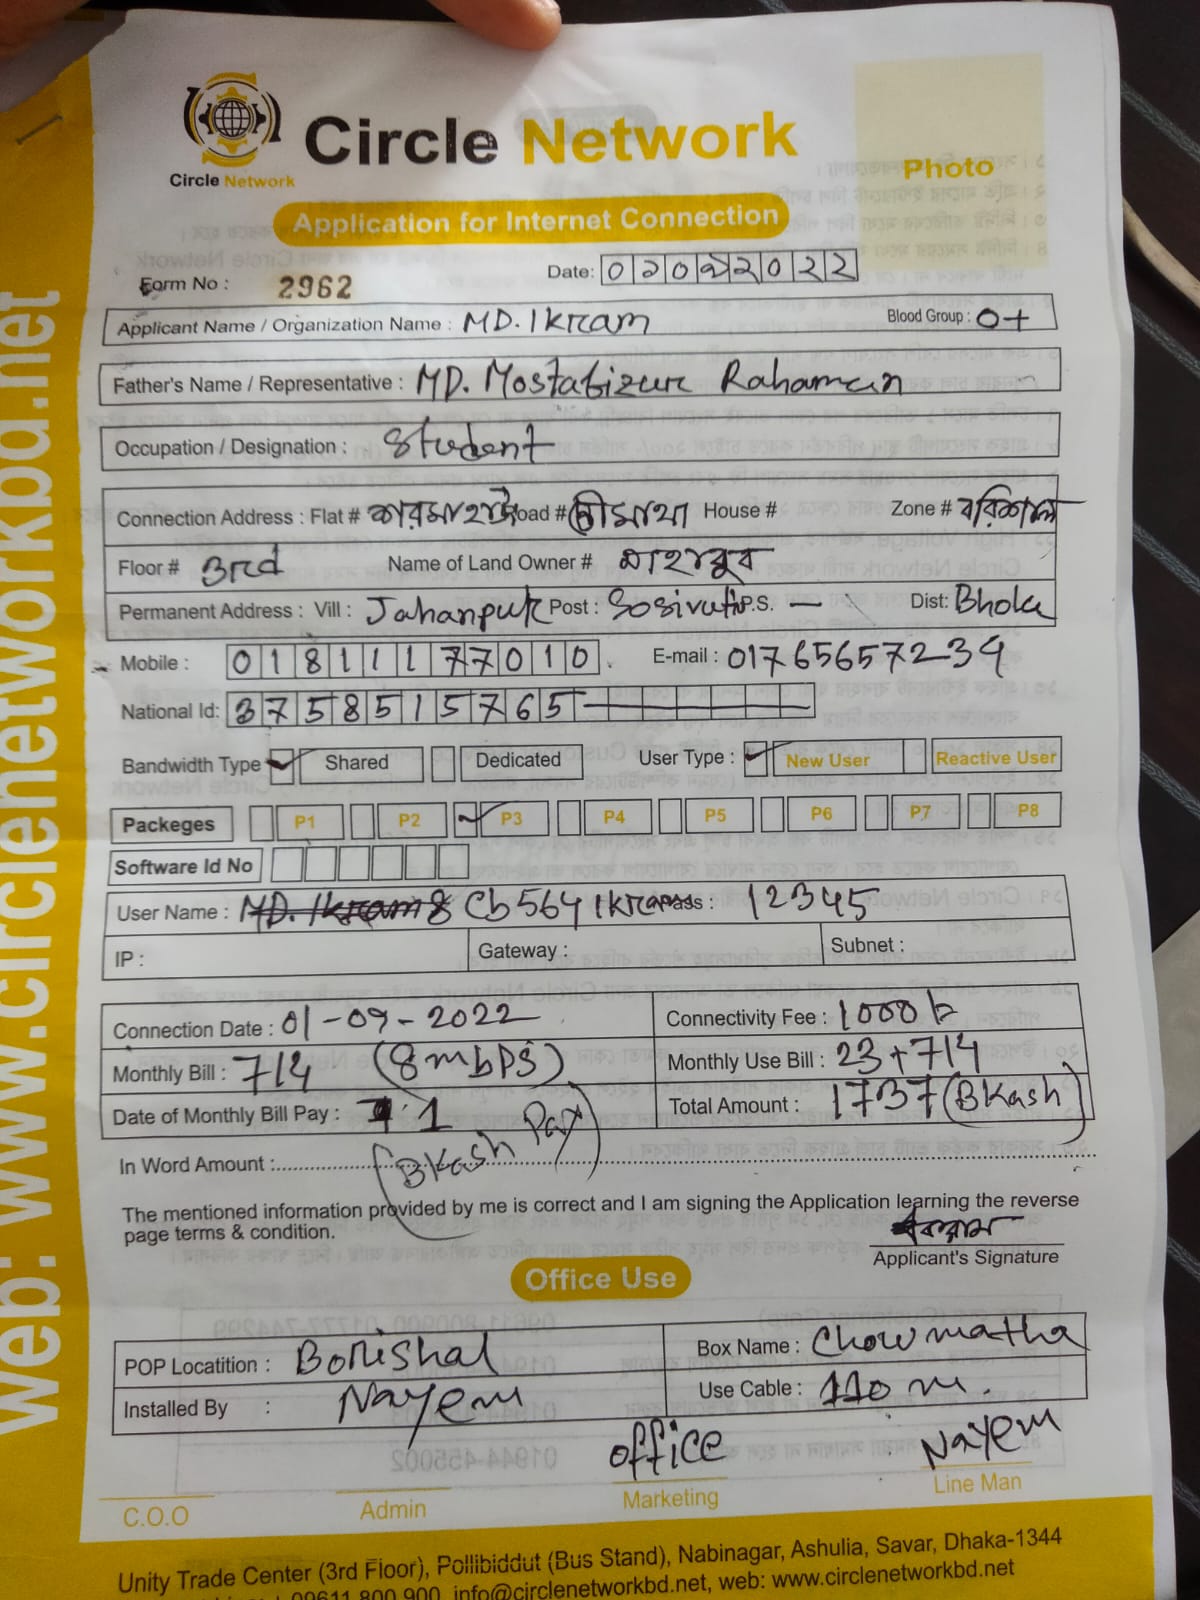 web: www.circlenetworkbd.net
Circle Network
Circle Network
Photo
Application for Internet Connection
Form No : 2962
Date: 2022
Applicant Name / Organization Name : MD. Ikram Blood Group : O+
Father's Name / Representative : MD. Mostafizur Rahaman
Occupation / Designation : Student
Connection Address : Flat # Road # চৌমাথা House # Zone # বরিশাল
Floor # 3rd Name of Land Owner # মাহাবুব
Permanent Address : Vill : Jahanpur Post : P.S. — Dist: Bhola
Mobile : 01811177010 E-mail : 01765657234
National Id: 3758515765
Bandwidth Type Shared Dedicated User Type : New User Reactive User
Packeges P1 P2 P3 P4 P5 P6 P7 P8
Software Id No
User Name : MD. Ikram8 Cb564 Ikram Pass : 12345
IP : Gateway : Subnet :
Connection Date : 01-09-2022 Connectivity Fee : 1000 ৳
Monthly Bill : 714 (8mbps) Monthly Use Bill : 23+714
Date of Monthly Bill Pay : 1 Total Amount : 1737 (BKash)
In Word Amount : (BKash Pay)
The mentioned information provided by me is correct and I am signing the Application learning the reverse
page terms & condition.
একরাম
Applicant's Signature
Office Use
POP Locatition : Borishal Box Name : Chowmatha
Installed By : Nayem Use Cable : 110 m.
office Nayem
C.O.O Admin Marketing Line Man
Unity Trade Center (3rd Floor), Pollibiddut (Bus Stand), Nabinagar, Ashulia, Savar, Dhaka-1344
09611 800 900, info@circlenetworkbd.net, web: www.circlenetworkbd.net